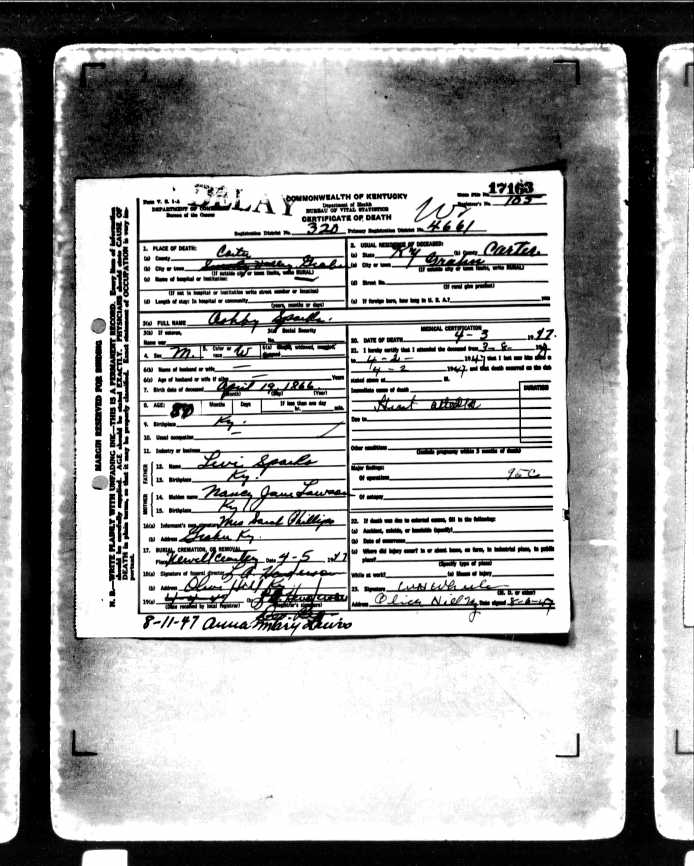 Form V. S. 1-A
DELAY
DEPARTMENT OF
Bureau of the Census
COMMONWEALTH OF KENTUCKY
Department of Health
BUREAU OF VITAL STATISTICS
CERTIFICATE OF DEATH
State File No. 17163
Registrar's No. 105
Registration District No. 320 Primary Registration District No. 4661
1. PLACE OF DEATH:
(a) County Carter
(b) City or town Grahn
(If outside city or town limits, write RURAL)
(c) Name of hospital or institution:
(If not in hospital or institution write street number or location)
(d) Length of stay: In hospital or community
(years, months or days)
2. USUAL RESIDENCE OF DECEASED:
(a) State KY (b) County Carter
(c) City or town Grahn
(If outside city or town limits, write RURAL)
(d) Street No.
(If rural give precinct)
(e) If foreign born, how long in U. S. A.? years
3(a) FULL NAME Ashby Sparks
3(b) If veteran,
Name war
3(c) Social Security
No.
4. Sex M. 5. Color or race W 6(a) Single, widowed, married, divorced
6(b) Name of husband or wife
6(c) Age of husband or wife if alive Years
7. Birth date of deceased April 19, 1866
(Month) (Day) (Year)
8. AGE: 80 Months Days If less than one day
hr. min.
9. Birthplace Ky.
10. Usual occupation
11. Industry or business
FATHER
12. Name Levi Sparks
13. Birthplace Ky.
MOTHER
14. Maiden name Nancy Jane Lawson
15. Birthplace Ky
16(a) Informant's own Mrs Sarah Phillips
(b) Address Grahn Ky.
17. BURIAL, CREMATION, OR REMOVAL
Place Date 4-5, 1947
18(a) Signature of funeral director L A Henderson
(b) Address Olive Hill Ky
19(a)
(Date received by local Registrar) (Registrar's signature)
MEDICAL CERTIFICATION
20. DATE OF DEATH 4-3 1947.
21. I hereby certify that I attended the deceased from 3-8-
to 4-2- 1947 that I last saw him alive
4-2 1947 and that death occurred on the date
stated above at M.
Immediate cause of death
DURATION
Heart attack
Due to
Other conditions
(Include pregnancy within 3 months of death)
Major findings:
Of operations
Of autopsy
22. If death was due to external causes, fill in the following:
(a) Accident, suicide, or homicide (specify)
(b) Date of occurrence
(c) Where did injury occur? In or about home, on farm, in industrial place, in public
place?
(Specify type of place)
While at work? (e) Means of injury
23. Signature
(M. D. or other)
Address Olive Hill Ky Date signed 8-6-47
8-11-47 Anna Mary Lewis
MARGIN RESERVED FOR BINDING
N. B.—WRITE PLAINLY WITH UNFADING INK—THIS IS A PERMANENT RECORD. Every item of information
should be carefully supplied. AGE should be stated EXACTLY. PHYSICIANS should state CAUSE OF
DEATH in plain terms, so that it may be properly classified. Exact statement of OCCUPATION is very im-
portant.